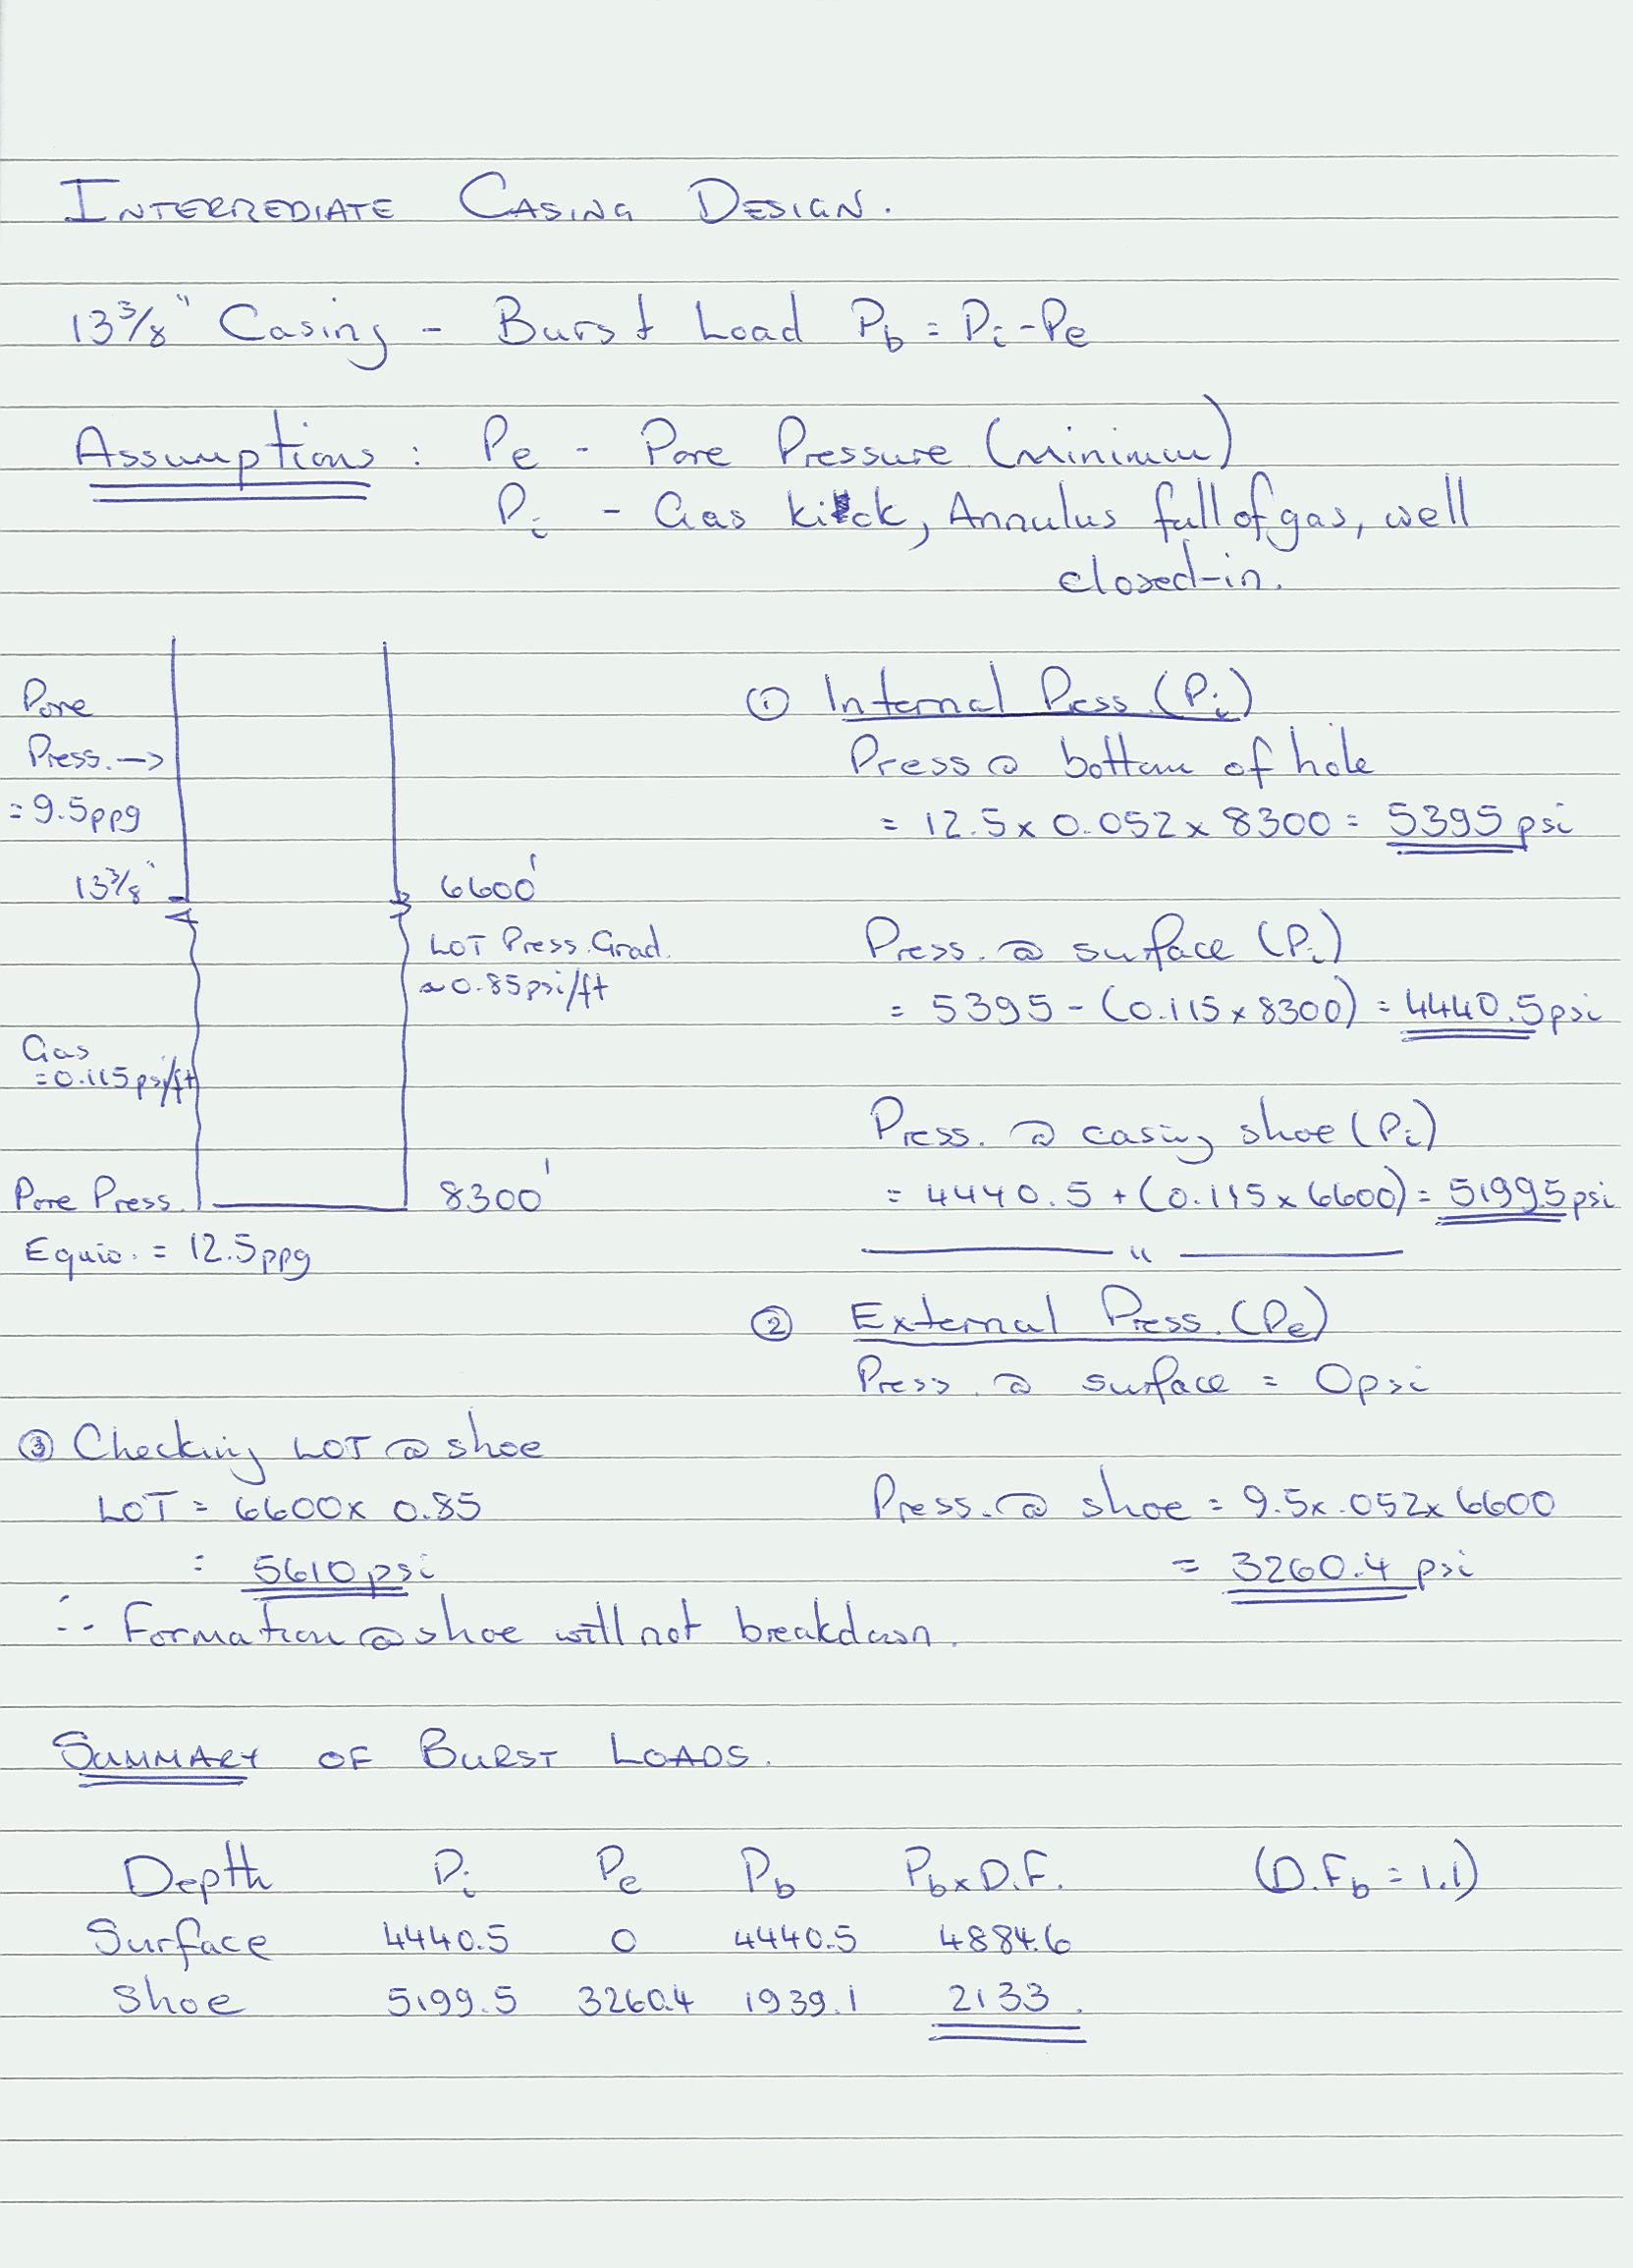 INTERMEDIATE CASING DESIGN.
13 3/8" Casing - Burst Load Pb = Pi - Pe
Assumptions : Pe - Pore Pressure (minimum)
Pi - Gas kick, Annulus full of gas, well
closed-in.
Pore
Press. ->
= 9.5ppg
13 3/8"
6600'
LOT Press. Grad.
≈ 0.85psi/ft
Gas
= 0.115psi/ft
Pore Press.
8300'
Equiv. = 12.5ppg
① Internal Press. (Pi)
Press @ bottom of hole
= 12.5 x 0.052 x 8300 = 5395 psi
Press. @ surface (Pi)
= 5395 - (0.115 x 8300) = 4440.5psi
Press. @ casing shoe (Pi)
= 4440.5 + (0.115 x 6600) = 5199.5 psi
—— " ——
② External Press. (Pe)
Press. @ surface = 0psi
Press. @ shoe = 9.5 x .052 x 6600
= 3260.4 psi
③ Checking LOT @ shoe
LOT = 6600 x 0.85
= 5610 psi
∴ Formation @ shoe will not breakdown.
SUMMARY OF BURST LOADS.
Depth Pi Pe Pb Pb x D.F. (D.Fb = 1.1)
Surface 4440.5 0 4440.5 4884.6
Shoe 5199.5 3260.4 1939.1 2133.